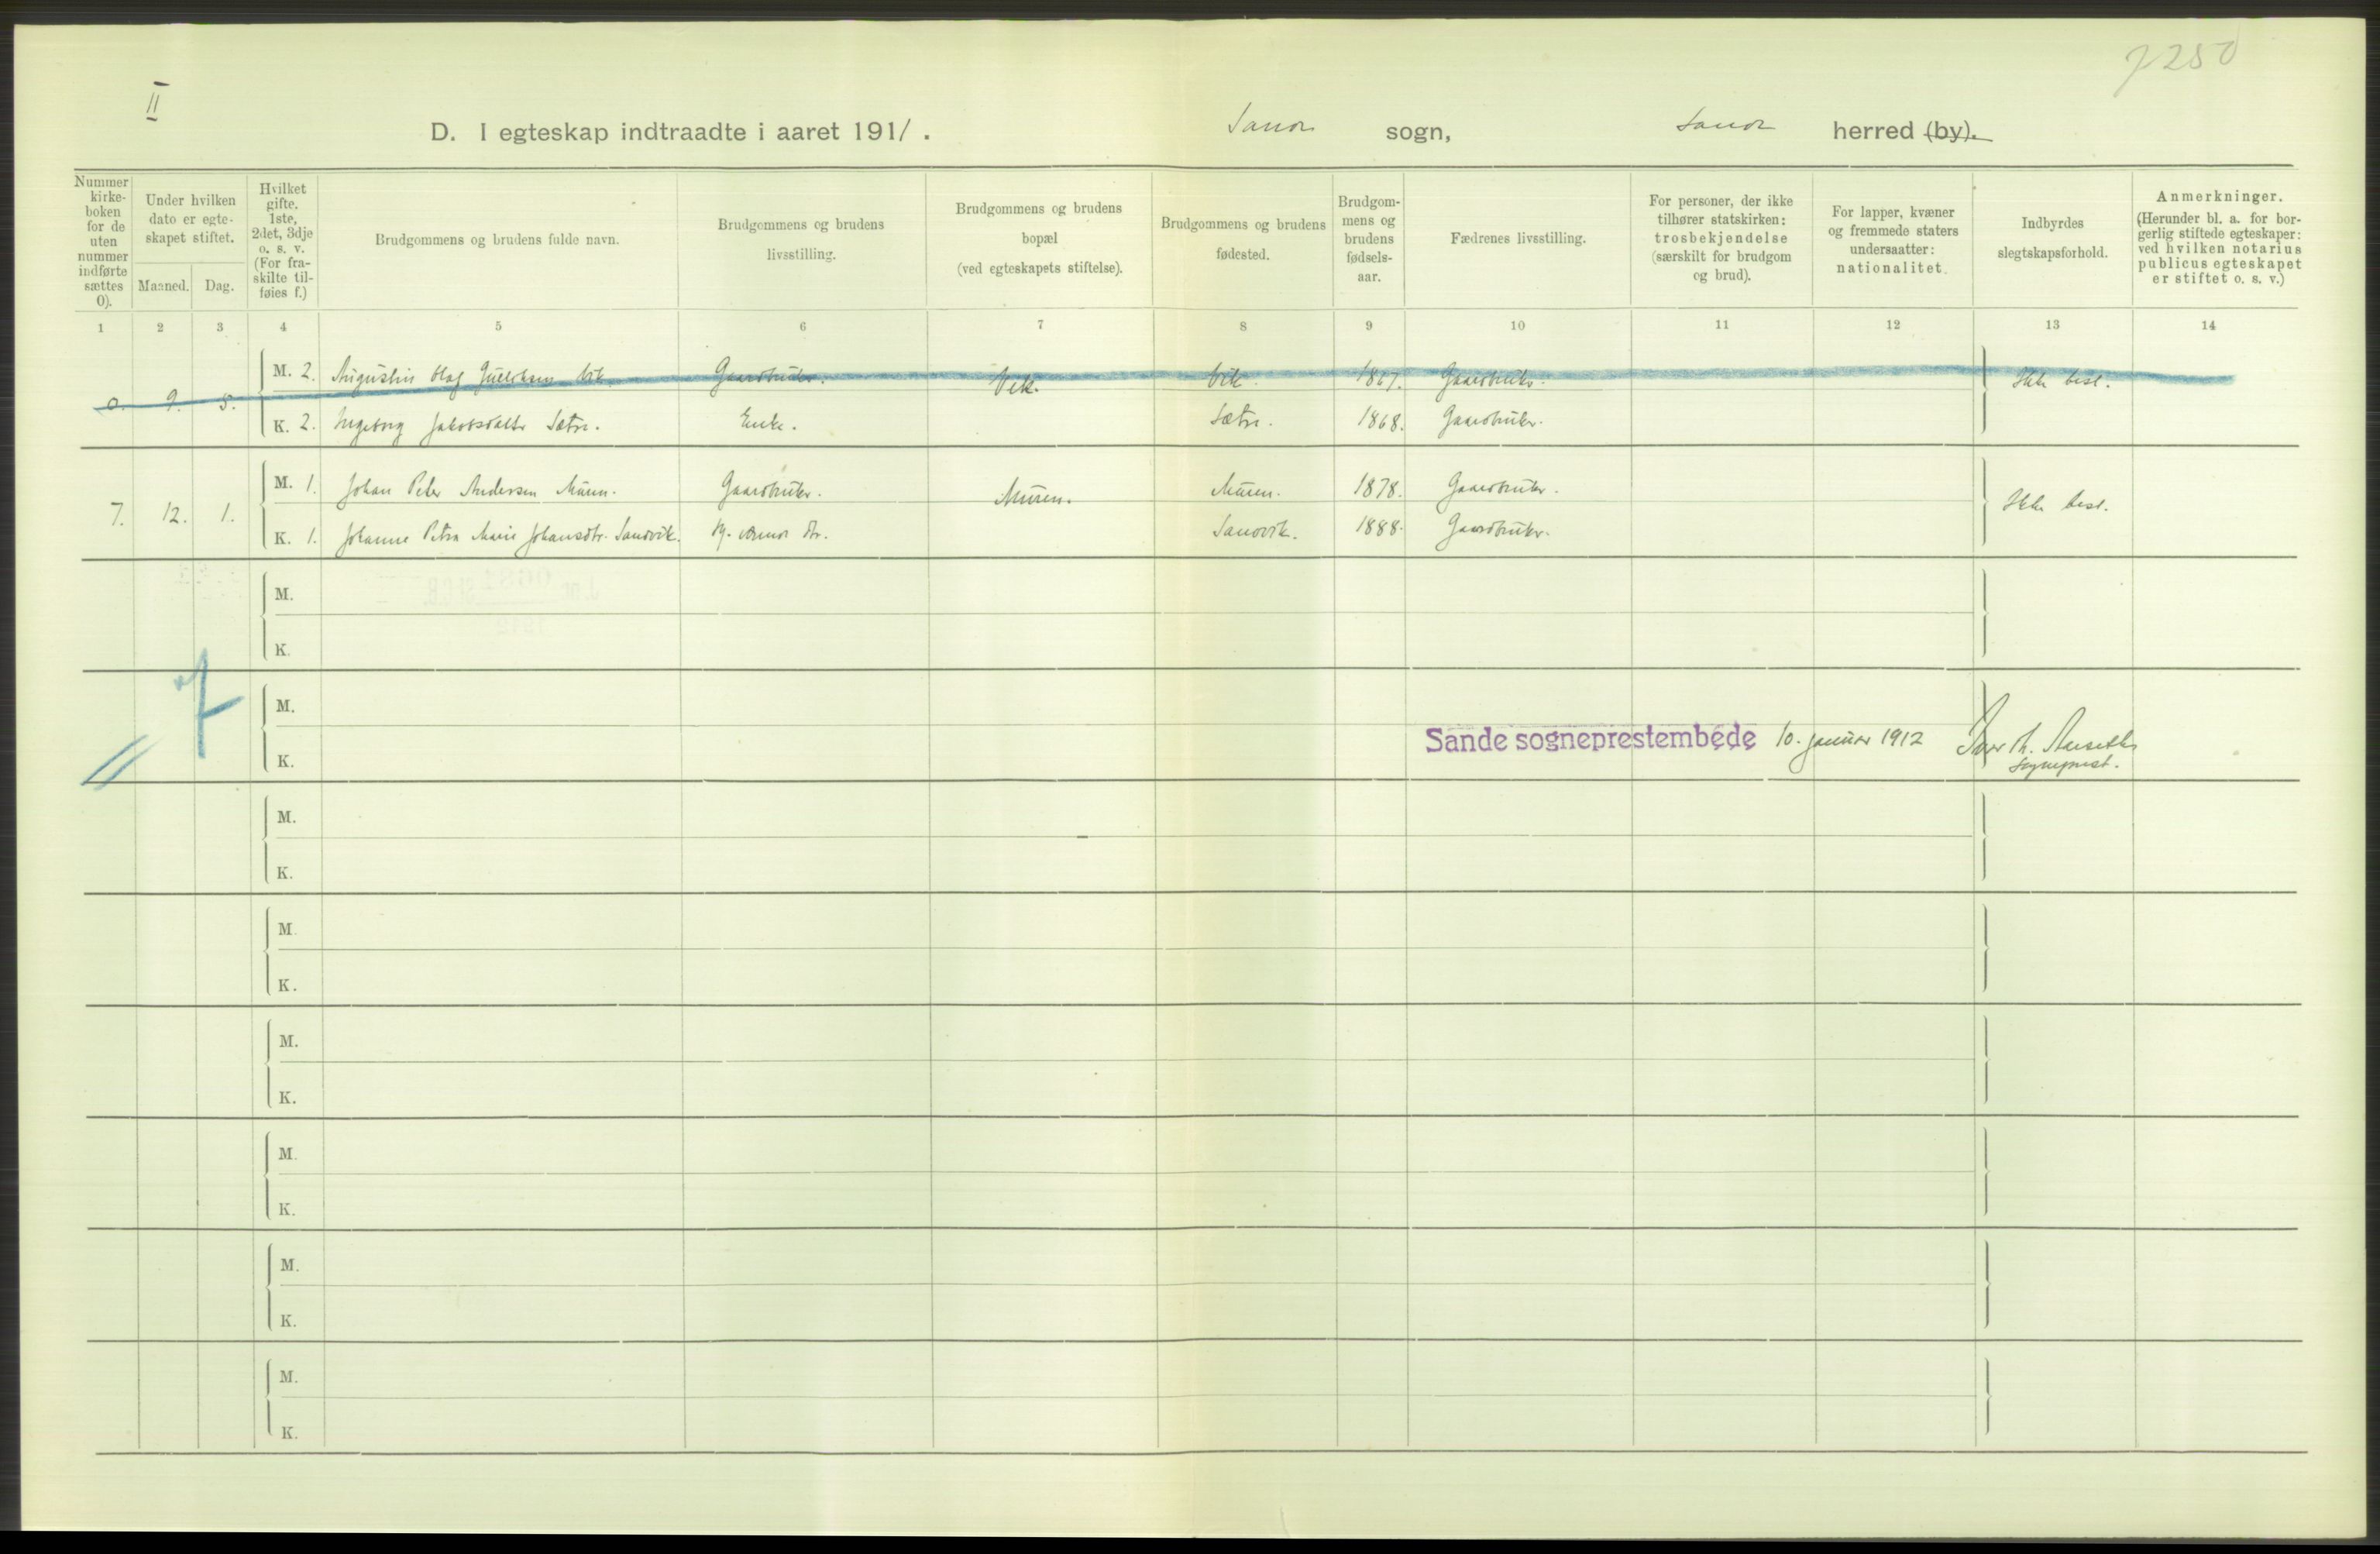 7250
II
D. I egteskap indtraadte i aaret 1911. Sande sogn, Sande herred (by).
Nummer kirkeboken for de uten nummer indførte sættes 0).
Under hvilken dato er egteskapet stiftet.
Maaned. Dag.
Hvilket gifte, 1ste, 2det, 3dje o. s. v. (For fraskilte tilføies f.)
Brudgommens og brudens fulde navn.
Brudgommens og brudens livsstilling.
Brudgommens og brudens bopæl (ved egteskapets stiftelse).
Brudgommens og brudens fødested.
Brudgommens og brudens fødselsaar.
Fædrenes livsstilling.
For personer, der ikke tilhører statskirken: trosbekjendelse (særskilt for brudgom og brud).
For lapper, kvæner og fremmede staters undersaatter: nationalitet.
Indbyrdes slegtskapsforhold.
Anmerkninger. (Herunder bl. a. for borgerlig stiftede egteskaper: ved hvilken notarius publicus egteskapet er stiftet o. s. v.)
1 2 3 4 5 6 7 8 9 10 11 12 13 14
0. 9. 5. M. 2. Augustin Olaf Gulliksen Vik Gaardbruker. Vik. Vik. 1867. Gaardbruker. Ikke besl.
K. 2. Ingeborg Jakobsdatter Sætre. Enke. Sætre. 1868. Gaardbruker.
7. 12. 1. M. 1. Johan Peter Andersen Muren. Gaardbruker. Muren. Muren. 1878. Gaardbruker. Ikke besl.
K. 1. Johanne Petra Marie Johansdtr. Sandvik. Sandvik. 1888. Gaardbruker.
M.
K.
7
M.
Sande sogneprestembede 10. januar 1912
K.
sogneprest.
M.
K.
M.
K.
M.
K.
M.
K.
M.
K.
M.
K.